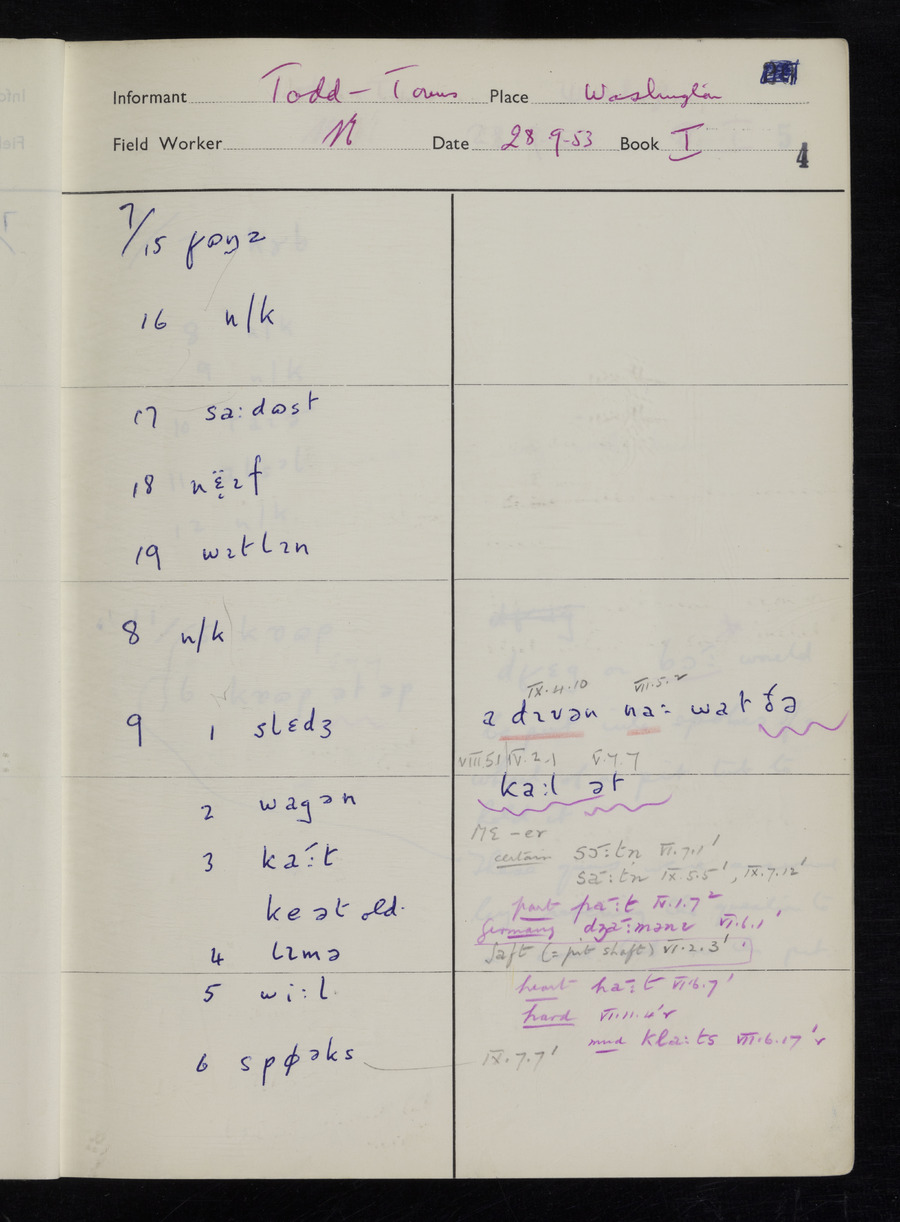 Informant Todd – Towns Place Washington
Field Worker N Date 28·9·53 Book I
4
7/15
16 n/k
17 sa:dɷst
18 nɛ̈ɪf
19 wɪtlɪn
8 n/k
IX.4.10 VII.5.2
9 1 slɛdʒ a dɪvən na: wat ðə
VIII.5.1 IV.2.1 V.7.7
ka:l ət
2 wagən
ME -er
3 ka:t certain sɔ̄:tn VI.7.1'
sa:tn IX.5.5', IX.7.12'
keət old. part pa:t IV.1.7²
Germany dʒa:mənɪ VI.6.1'
4 lɪmə ʃaft (= pit shaft) VI.2.3'
5 wi:l heart ha:t VI.6.7'
hard VI.11.4'r
mud kla:ts VII.6.17'r
6 spøəks IX.7.7'